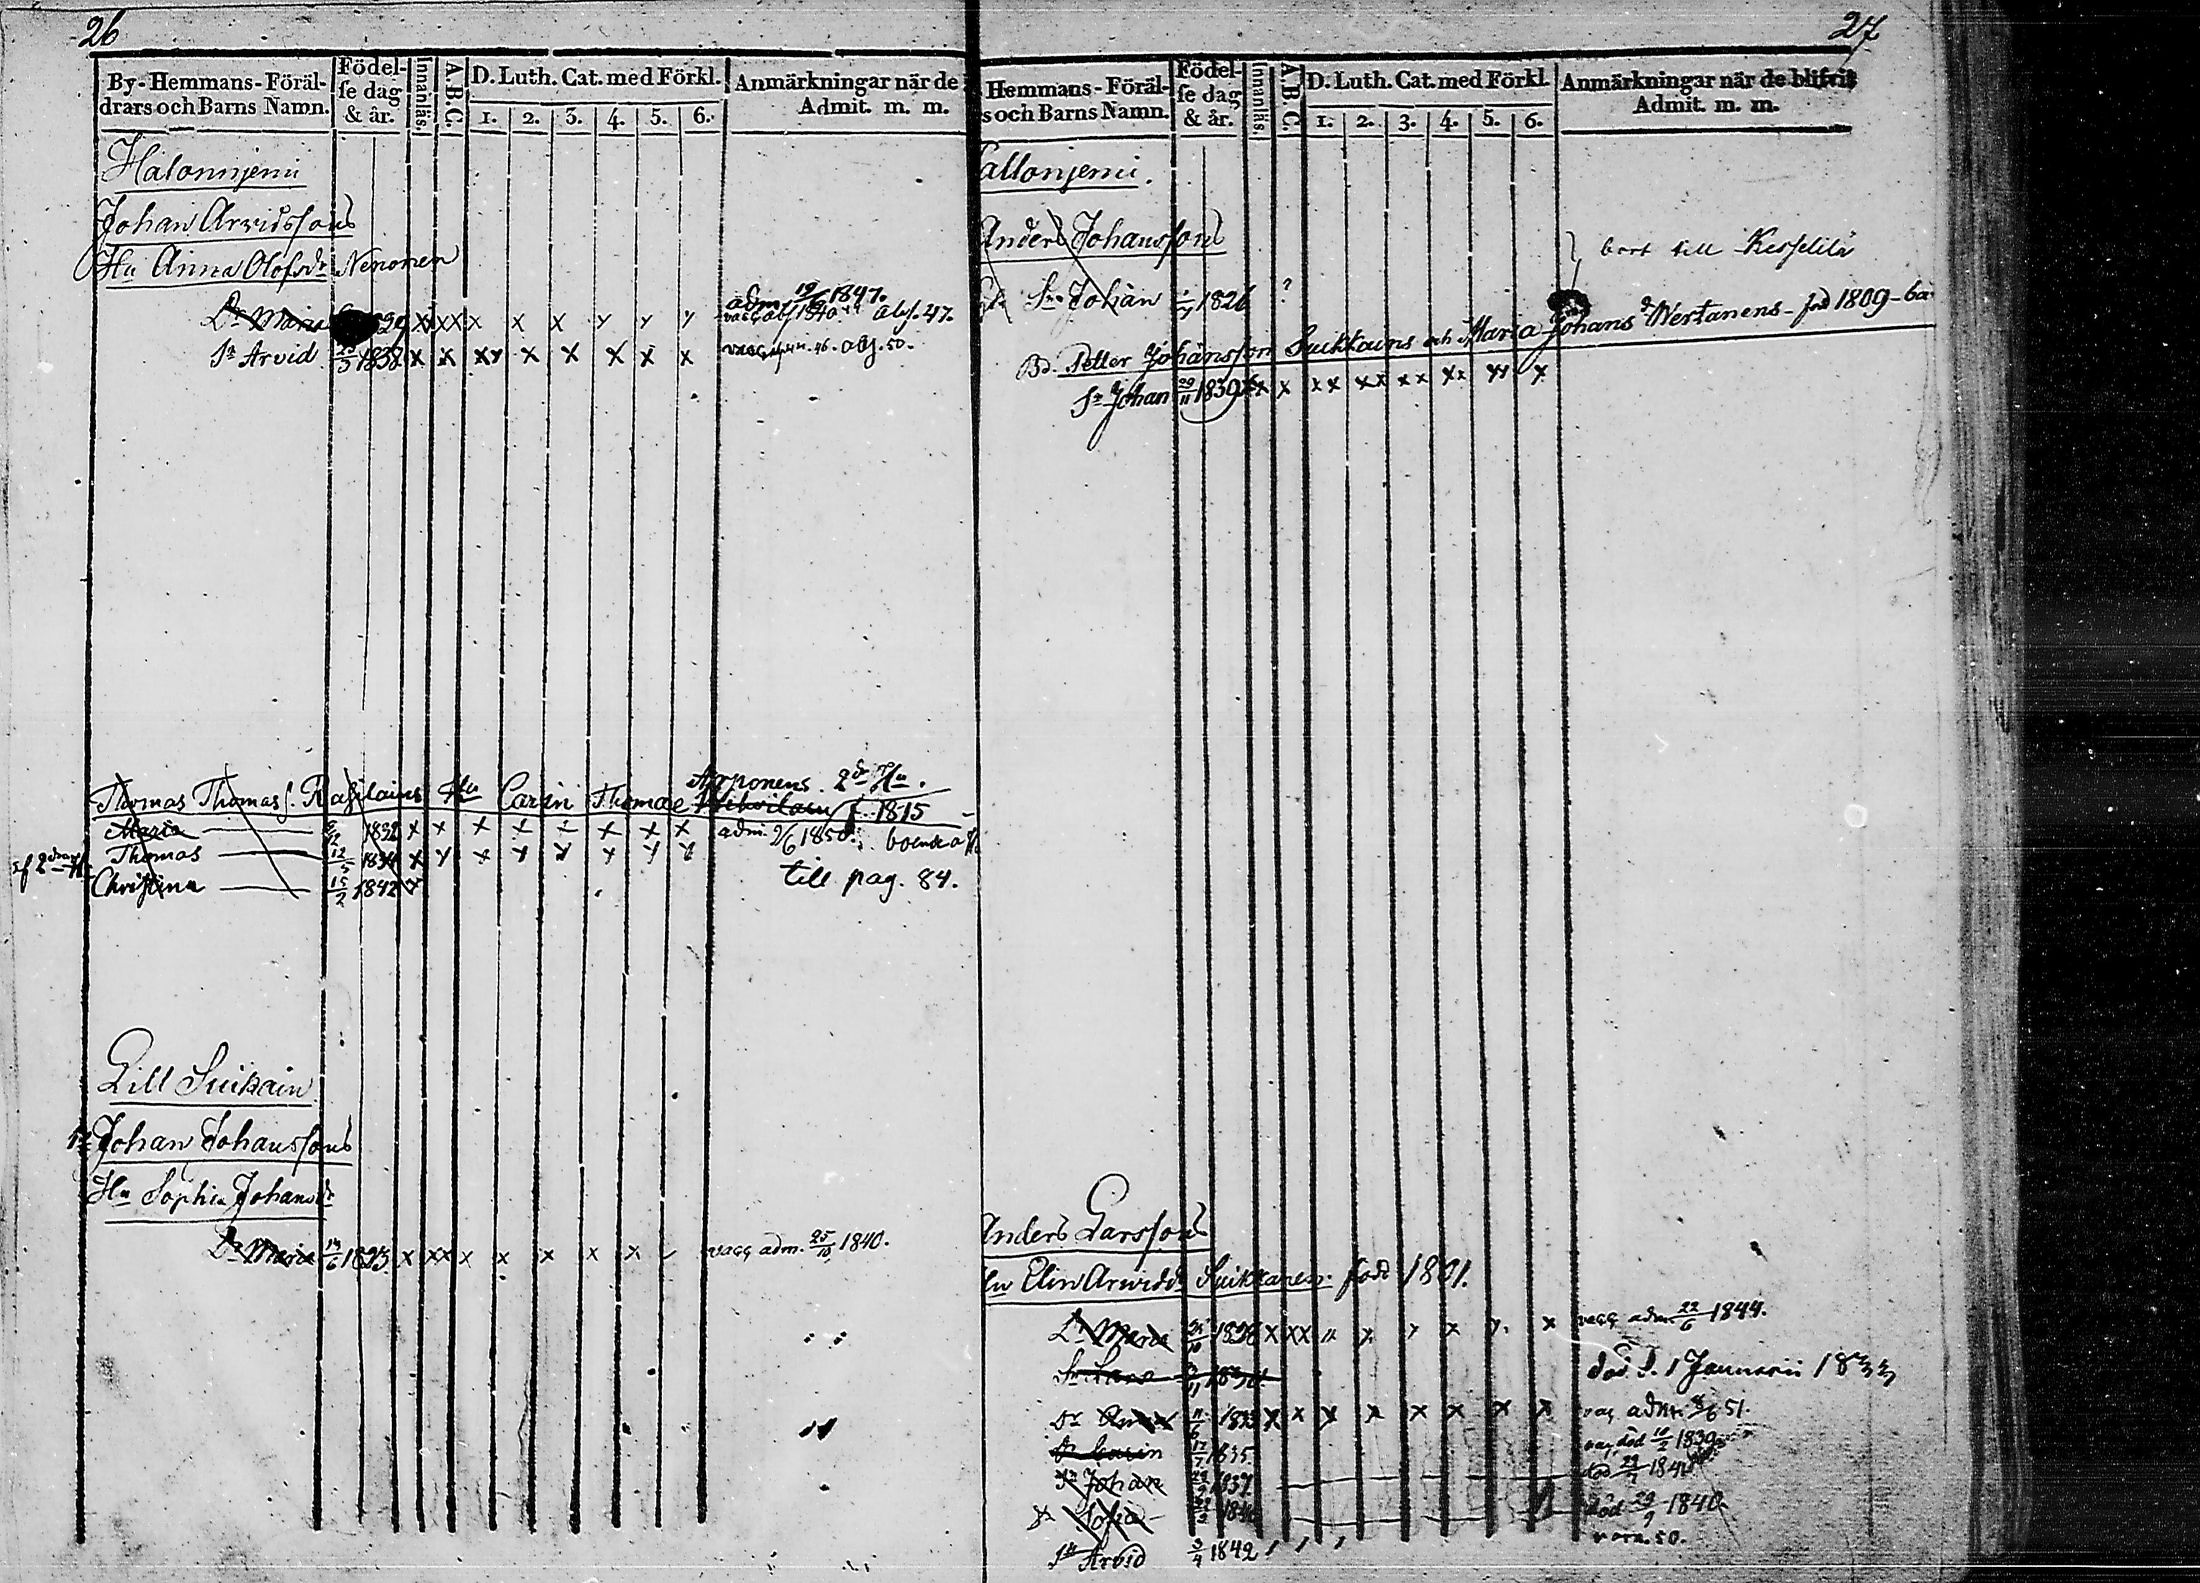 26
By- Hemmans- Föräl-
drars och Barns Namn.
Födel-
se dag
& år.
Innanläs.
A.B.C.
D. Luth. Cat. med Förkl.
1. 2. 3. 4. 5. 6.
Anmärkningar när de
Admit. m. m.
Halonnjemi
Johan Arvidssons
Hu Anna Olofsdr Nenonen
Dr Maria x xxx x x x y y y adm. 19/6 1847.
1840 abs. 47.
Sn Arvid 1838 x x xy x x x x x 46. abs. 50.
Thomas Thomas s. Rasilains Hu Carin Thomae Apponens 2dr Hu.
f. 1815
Maria 1832 x x x x x x x x adm. 9/6 1850. boende
Thomas 12/5 1834 x y x y y y y y
af 2dra H. Christina 15/2 1842 x
till pag. 84.
Lill Suikain
Johan Johanssons
Hu Sophia Johansdr
Dr Maria 14/6 1823 x xx x x x x x vacc adm. 25/10 1840.
27
Hemmans- Föräl-
s och Barns Namn.
Födel-
se dag
& år.
Innanläs.
A.B.C.
D. Luth. Cat. med Förkl.
1. 2. 3. 4. 5. 6.
Anmärkningar när de blifvit
Admit. m. m.
allonjemi.
Anders Johanssons
bort till Kesselilä
Sn Johan 1826 ?
Bd. Petter Johansson Suikkains och Maria Johans dr Wertanens - född 1809 -
Sn Johan 29/11 1839 x x x xx xx xx xx yy x
Anders Larssons
Hu Elin Arvidsdr Suikkanen. född 1801.
Dr Maria 1828 x xx x y x y. x vacc adm. 22/6 1844.
Sn Lars död d. 1 Januarii 1833
Dr Anna 11/6 1833 x x y x x x x x vac adm. 8/6 51.
Dr Carin 17/7 1835. vac. död 10/2 1839
Sn Johan 1837 död
Dr Sofia 1840 död 29/9 1840
Sn Arvid 3/4 1842 / / / vacc. 50.